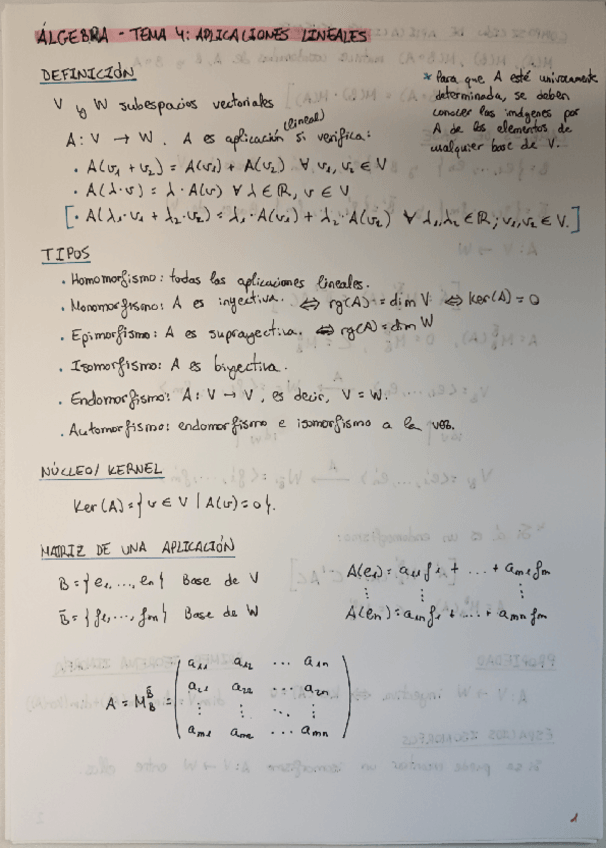 ÁLGEBRA - TEMA 4: APLICACIONES LINEALES
DEFINICIÓN
V y W subespacios vectoriales
A: V → W. A es aplicación (lineal) si verifica:
· A(v₁ + v₂) = A(v₁) + A(v₂) ∀ v₁, v₂ ∈ V
· A(λ·v) = λ·A(v) ∀ λ ∈ ℝ, v ∈ V
[· A(λ₁·v₁ + λ₂·v₂) = λ₁·A(v₁) + λ₂·A(v₂) ∀ λ₁, λ₂ ∈ ℝ; v₁, v₂ ∈ V.]
* Para que A esté unívocamente
determinada, se deben
conocer las imágenes por
A de los elementos de
cualquier base de V.
TIPOS
· Homomorfismo: todas las aplicaciones lineales.
· Monomorfismo: A es inyectiva. ⇔ rg(A) = dim V ⇔ Ker(A) = 0
· Epimorfismo: A es suprayectiva. ⇔ rg(A) = dim W
· Isomorfismo: A es biyectiva.
· Endomorfismo: A: V → V, es decir, V = W.
· Automorfismo: endomorfismo e isomorfismo a la vez.
NÚCLEO / KERNEL
Ker(A) = { v ∈ V | A(v) = 0 }.
MATRIZ DE UNA APLICACIÓN
B = { e₁, ..., eₙ } Base de V
B̄ = { f₁, ..., fₘ } Base de W
A(e₁) = a₁₁f₁ + ... + aₘ₁fₘ
⋮ ⋮ ⋮
A(eₙ) = a₁ₙf₁ + ... + aₘₙfₘ
a₁₁ a₁₂ ... a₁ₙ
A = M_B^B̄ = a₂₁ a₂₂ ... a₂ₙ
⋮ ⋮ ⋱ ⋮
aₘ₁ aₘ₂ ... aₘₙ
1